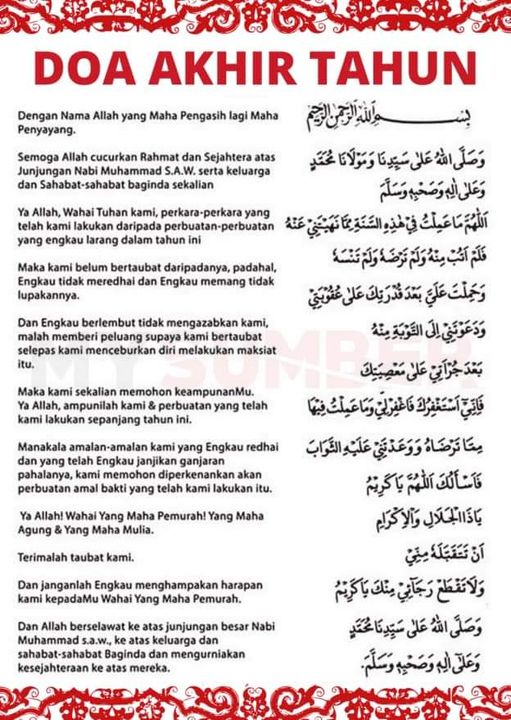 DOA AKHIR TAHUN
Dengan Nama Allah yang Maha Pengasih lagi Maha
Penyayang.
Semoga Allah cucurkan Rahmat dan Sejahtera atas
Junjungan Nabi Muhammad S.A.W. serta keluarga
dan Sahabat-sahabat baginda sekalian
Ya Allah, Wahai Tuhan kami, perkara-perkara yang
telah kami lakukan daripada perbuatan-perbuatan
yang engkau larang dalam tahun ini
Maka kami belum bertaubat daripadanya, padahal,
Engkau tidak meredhai dan Engkau memang tidak
lupakannya.
Dan Engkau berlembut tidak mengazabkan kami,
malah memberi peluang supaya kami bertaubat
selepas kami menceburkan diri melakukan maksiat
itu.
Maka kami sekalian memohon keampunanMu.
Ya Allah, ampunilah kami & perbuatan yang telah
kami lakukan sepanjang tahun ini.
Manakala amalan-amalan kami yang Engkau redhai
dan yang telah Engkau janjikan ganjaran
pahalanya, kami memohon diperkenankan akan
perbuatan amal bakti yang telah kami lakukan itu.
Ya Allah! Wahai Yang Maha Pemurah! Yang Maha
Agung & Yang Maha Mulia.
Terimalah taubat kami.
Dan janganlah Engkau menghampakan harapan
kami kepadaMu Wahai Yang Maha Pemurah.
Dan Allah berselawat ke atas junjungan besar Nabi
Muhammad s.a.w., ke atas keluarga dan
sahabat-sahabat Baginda dan mengurniakan
kesejahteraan ke atas mereka.
بِسْمِ اللهِ الرَّحْمٰنِ الرَّحِيْمِ
وَصَلَّى اللهُ عَلٰى سَيِّدِنَا وَمَوْلَانَا مُحَمَّدٍ
وَعَلٰى اٰلِهِ وَصَحْبِهِ وَسَلَّمَ
اَللّٰهُمَّ مَا عَمِلْتُ فِيْ هٰذِهِ السَّنَةِ مِمَّا نَهَيْتَنِيْ عَنْهُ
فَلَمْ اَتُبْ مِنْهُ وَلَمْ تَرْضَهُ وَلَمْ تَنْسَهُ
وَحَلِمْتَ عَلَيَّ بَعْدَ قُدْرَتِكَ عَلٰى عُقُوْبَتِيْ
وَدَعَوْتَنِيْ اِلَى التَّوْبَةِ مِنْهُ
بَعْدَ جُرْاَتِيْ عَلٰى مَعْصِيَتِكَ
فَاِنِّيْ اَسْتَغْفِرُكَ فَاغْفِرْلِيْ وَمَا عَمِلْتُ فِيْهَا
مِمَّا تَرْضَاهُ وَوَعَدْتَنِيْ عَلَيْهِ الثَّوَابَ
فَاَسْاَلُكَ اللّٰهُمَّ يَا كَرِيْمُ
يَا ذَا الْجَلَالِ وَالْاِكْرَامِ
اَنْ تَتَقَبَّلَهُ مِنِّيْ
وَلَا تَقْطَعْ رَجَائِيْ مِنْكَ يَا كَرِيْمُ
وَصَلَّى اللهُ عَلٰى سَيِّدِنَا مُحَمَّدٍ
وَعَلٰى اٰلِهِ وَصَحْبِهِ وَسَلَّمَ.
MY SUMBER